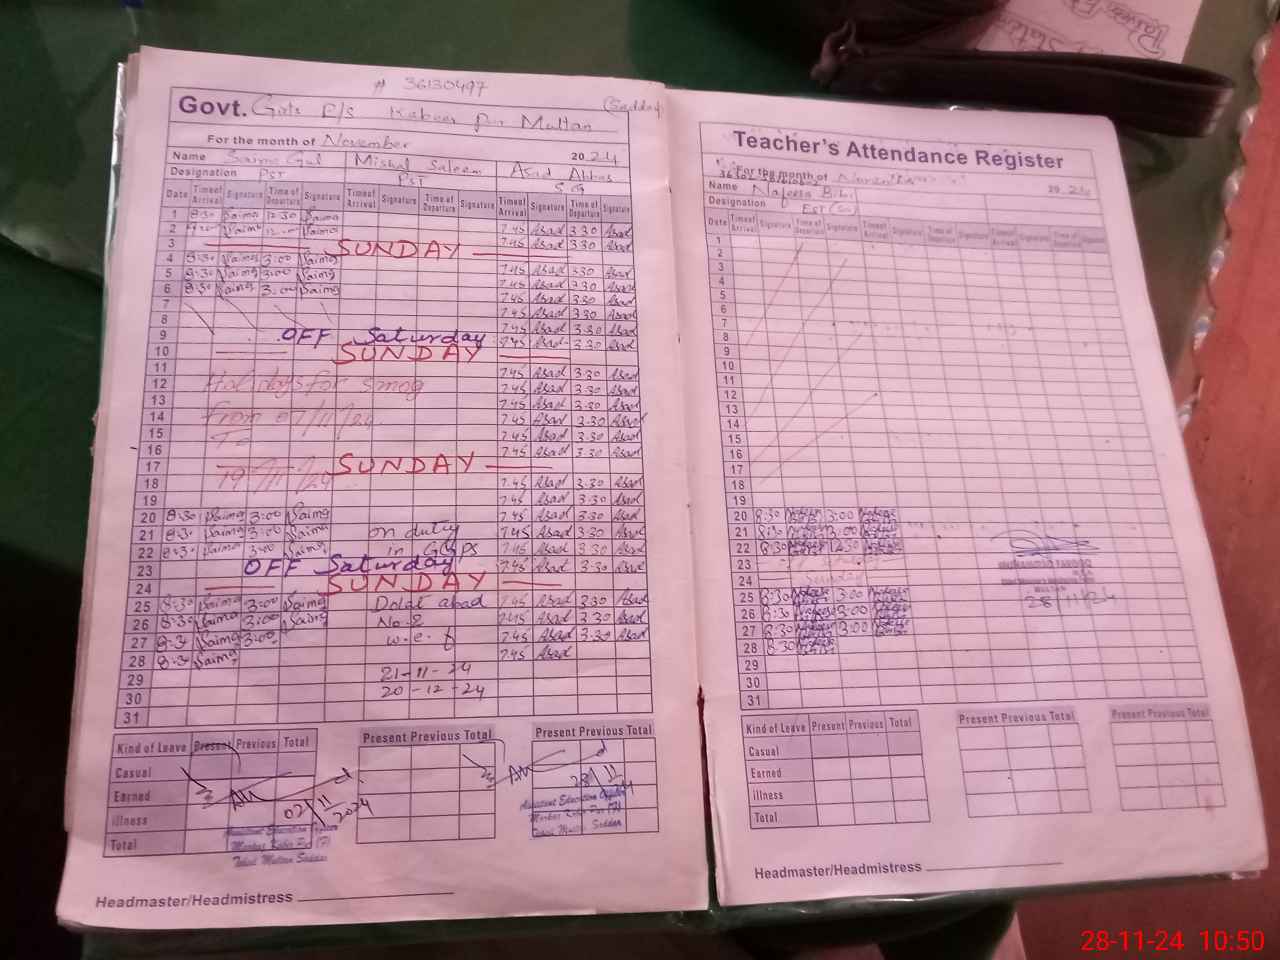 # 36130497
Govt. Girls P/S Kabeer Pur Multan (Saddar)
For the month of November 2024
Name Saima Gul Mishal Saleem Asad Abbas
Designation PST PST S.G
Date Time of Arrival Signature Time of Departure Signature Time of Arrival Signature Time of Departure Signature Time of Arrival Signature Time of Departure Signature
1 8:30 Saima 12:30 Saima
2 Saima Saima 7.45 Asad 3.30 Asad
3 SUNDAY 7.45 Asad 3.30 Asad
4 8:30 Saima 3:00 Saima
5 8:30 Saima 3:00 Saima 7.45 Asad 3.30 Asad
6 8:30 Saima 3:00 Saima 7.45 Asad 3.30 Asad
7 7.45 Asad 3.30 Asad
8 7.45 Asad 3.30 Asad
9 OFF Saturday 7.45 Asad 3.30 Asad
10 SUNDAY 7.45 Asad 3.30 Asad
11 7.45 Asad 3.30 Asad
12 Holidays for smog 7.45 Asad 3.30 Asad
13 7.45 Asad 3.30 Asad
14 From 07/11/24 7.45 Asad 3.30 Asad
15 To 7.45 Asad 3.30 Asad
16 7.45 Asad 3.30 Asad
17 SUNDAY
18 19/11/24 7.45 Asad 3.30 Asad
19 7.45 Asad 3.30 Asad
20 8:30 Saima 3:00 Saima 7.45 Asad 3.30 Asad
21 8:30 Saima 3:00 Saima on duty 7.45 Asad 3.30 Asad
22 8:30 Saima 3:00 Saima in GGPS 7.45 Asad 3.30 Asad
23 OFF Saturday 7.45 Asad 3.30 Asad
24 SUNDAY
25 8:30 Saima 3:00 Saima Dolat abad 7.45 Asad 3.30 Asad
26 8:30 Saima 3:00 Saima No.2 7.45 Asad 3.30 Asad
27 8:30 Saima 3:00 w.e.f 7.45 Asad 3.30 Asad
28 8:30 Saima 7.45 Asad
29 21-11-24
30 20-12-24
31
Kind of Leave Present Previous Total Present Previous Total Present Previous Total
Casual
Earned
illness
Total
02/11 2024
Assistant Education Officer
Markaz Kabir Pur (F)
Tehsil Multan Saddar
28/11
Assistant Education Officer
Markaz Kabir Pur (F)
Tehsil Multan Saddar
Headmaster/Headmistress
Teacher's Attendance Register
For the month of November 2024
Name Nafeesa Bibi
Designation EST
Date Time of Arrival Signature Time of Departure Signature Time of Arrival Signature Time of Departure Signature Time of Arrival Signature Time of Departure Signature
1
2
3
4
5
6
7
8
9
10
11
12
13
14
15
16
17
18
19
20 8:30 3:00
21 8:30 3:00
22 8:30 12:30
23
24 Sunday
25 8:30 3:00
26 8:30 3:00
27 8:30 3:00
28 8:30
29
30
31
28/11/24
Kind of Leave Present Previous Total Present Previous Total Present Previous Total
Casual
Earned
illness
Total
Headmaster/Headmistress
28-11-24 10:50